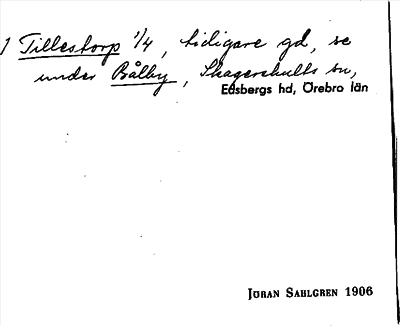 1 Tillestorp 1/4, tidigare gd, se
under Bålby, Skagershults sn,
Edsbergs hd, Örebro län
JÖRAN SAHLGREN 1906